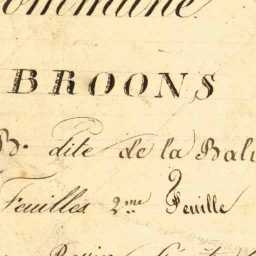 ommune
BROONS
B. dite de la Bal
Feuilles 2me Feuille